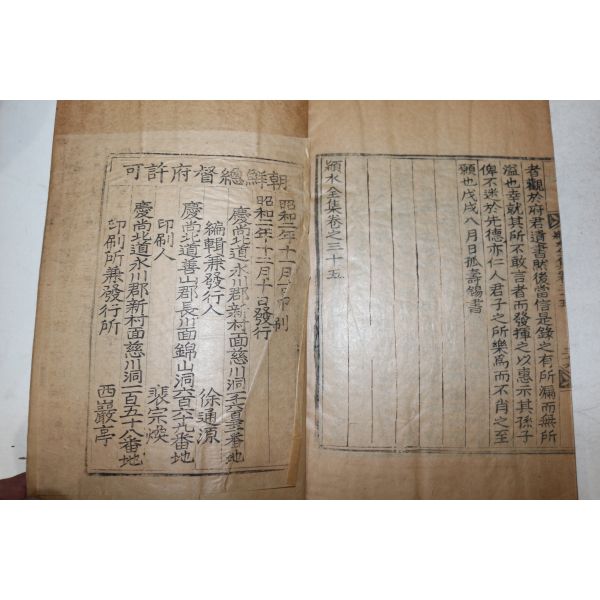 者觀於府君遺書然後當信是錄之有所漏而無所
溢也幸就其所不敢言者而發揮之以惠示其孫子
俾不迷於先德亦仁人君子之所樂爲而不肖之至
願也戊戌八月日孤壽錫書
潁水全集卷之三十五
朝鮮總督府許可
昭和二年十一月
昭和二年十二月十日發行
慶尚北道永川郡新村面慈川洞 番地
編輯兼發行人 徐通源
慶尚北道善山郡長川面錦山洞六百六十九番地
印刷人 裵宗煥
慶尚北道永川郡新村面慈川洞一百五十八番地
印刷所兼發行所 西巖亭